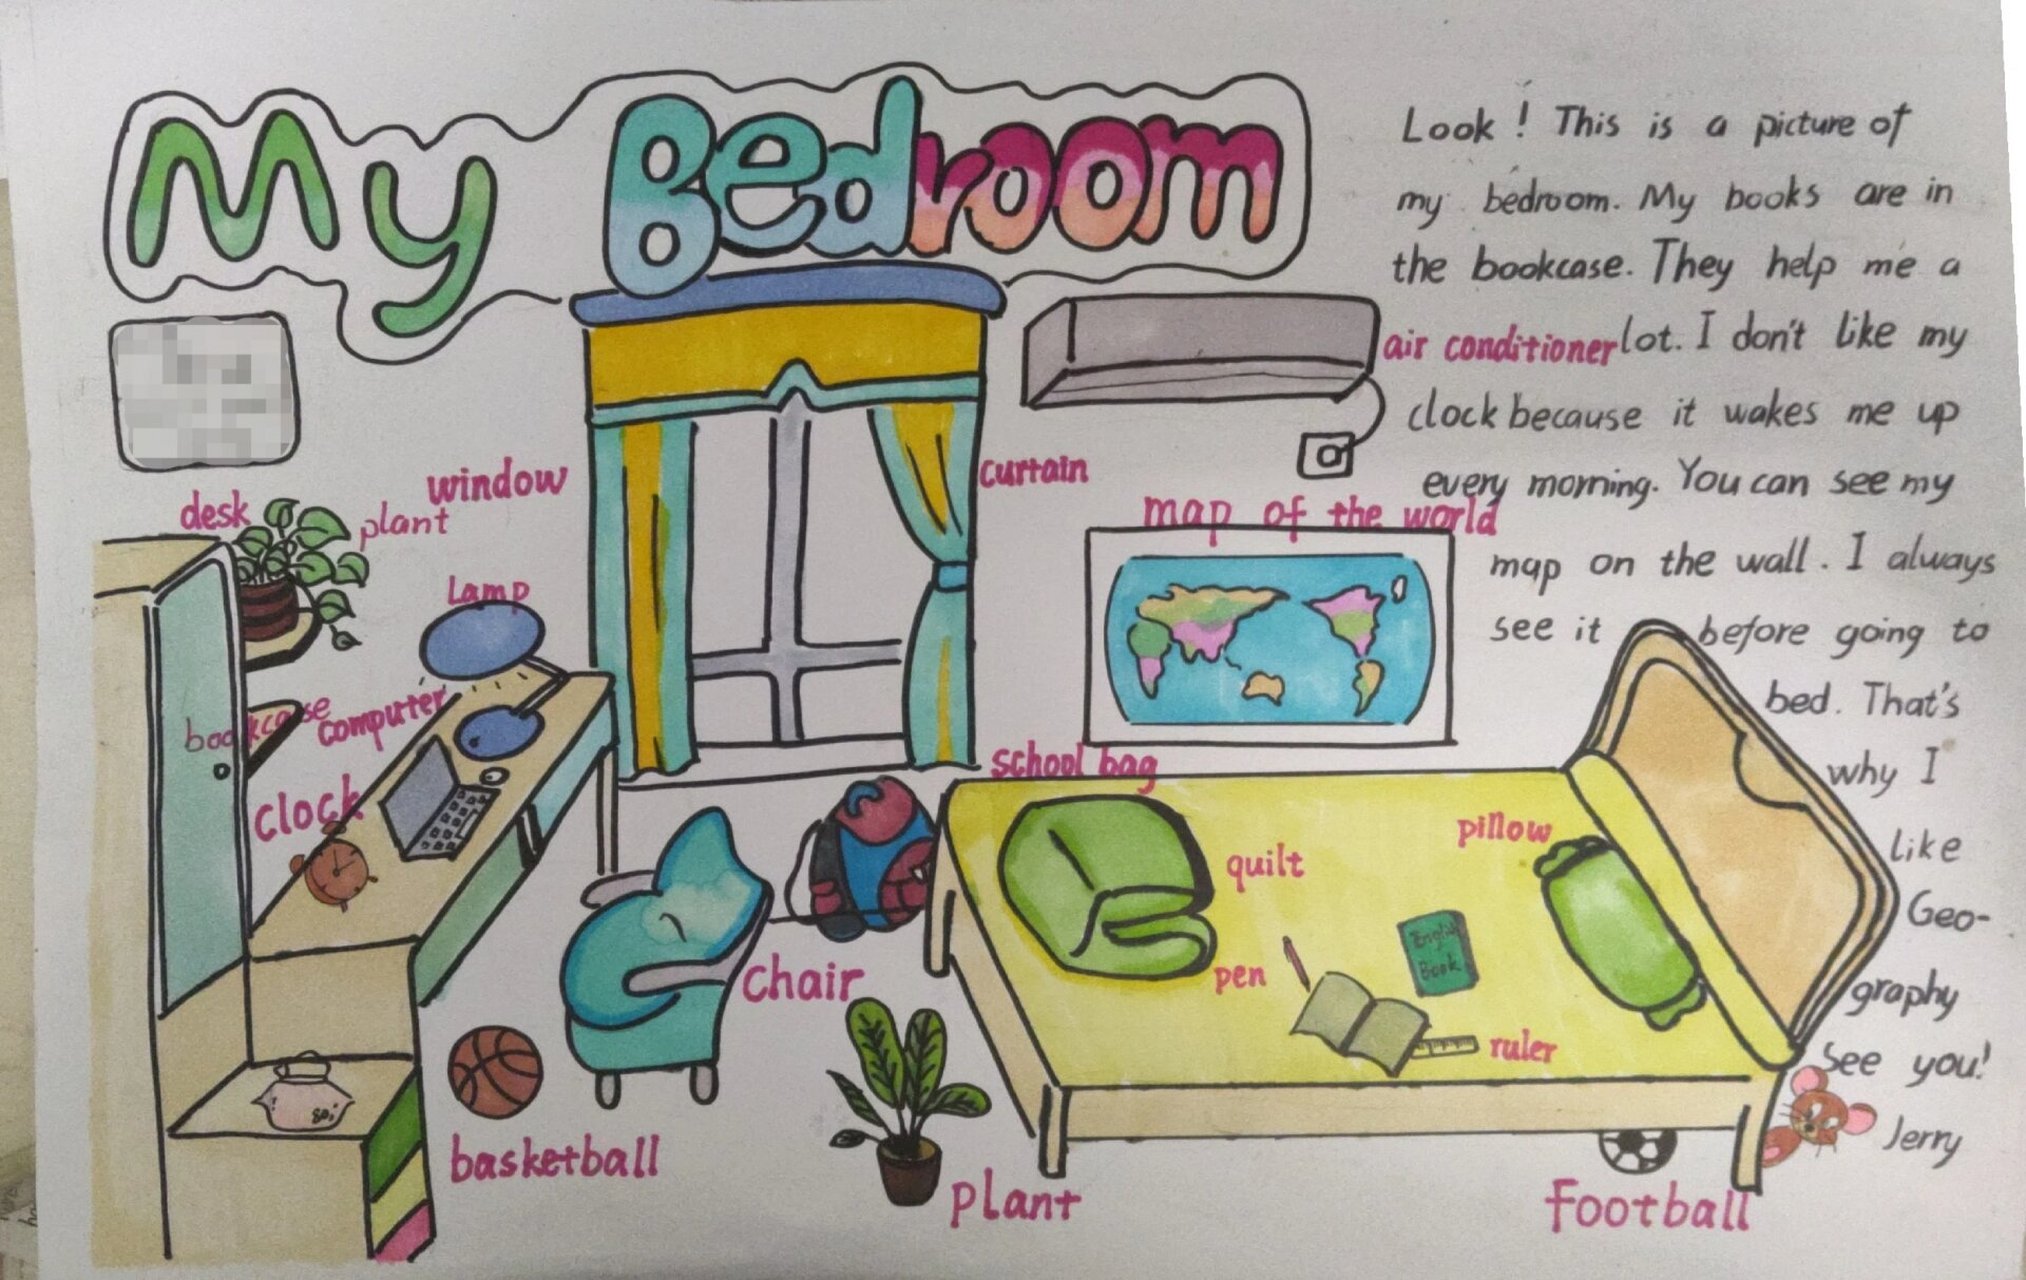 My Bedroom
Look! This is a picture of
my bedroom. My books are in
the bookcase. They help me a
lot. I don't like my
clock because it wakes me up
every morning. You can see my
map on the wall. I always
see it before going to
bed. That's
why I
like
Geo-
graphy
See you!
Jerry
air conditioner
window
curtain
map of the world
desk
plant
lamp
bookcase
computer
clock
school bag
quilt
pillow
English
Book
pen
ruler
chair
basketball
plant
football